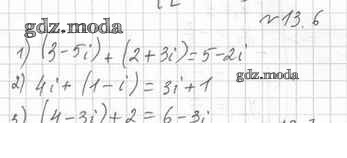 №13.6
gdz.moda
1) (3-5i)+(2+3i)=5-2i
gdz.moda
2) 4i+(1-i)=3i+1
3) (4-3i)+2=6-3i